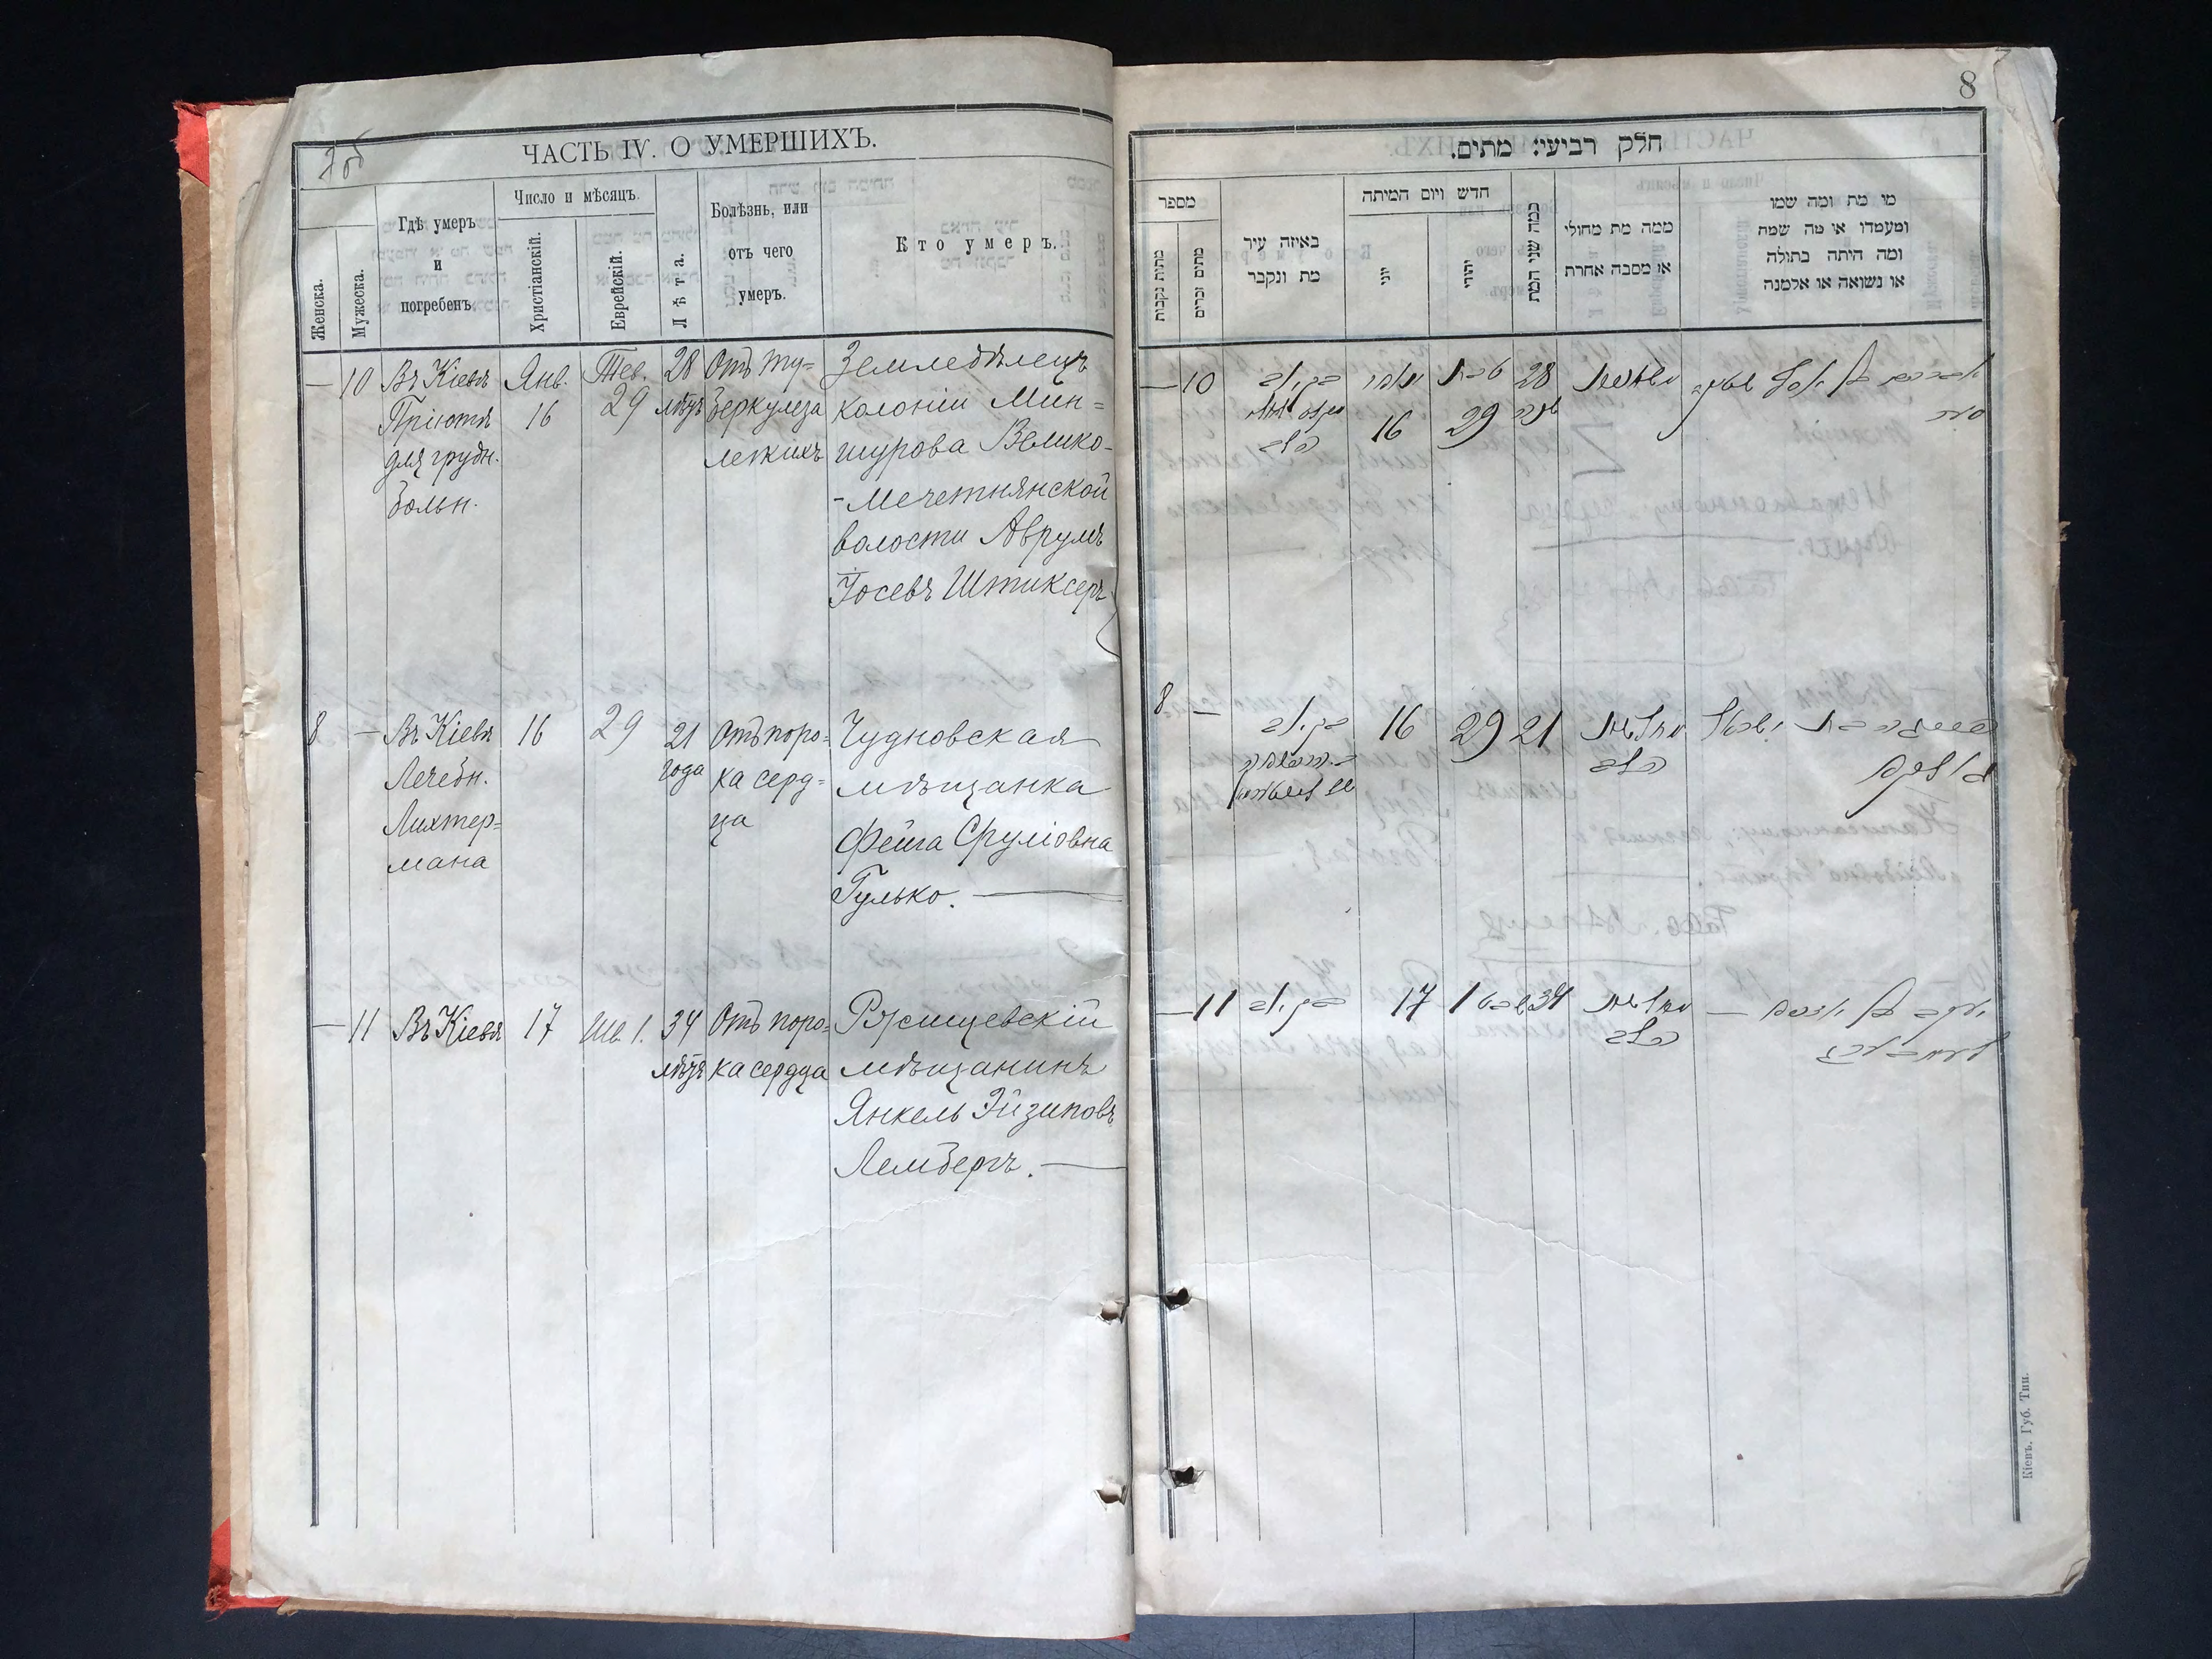 7об
ЧАСТЬ IV. О УМЕРШИХЪ.
Женска.
Мужеска.
Гдѣ умеръ
и
погребенъ
Число и мѣсяцъ.
Христіанскій.
Еврейскій.
Лѣта.
Болѣзнь, или
отъ чего
умеръ.
Кто умеръ.
— 10
Въ Кіевѣ
Пріютѣ
для грудн.
больн.
Янв.
16
Тев.
29
28
лѣтъ
Отъ ту=
беркулеза
легкихъ
Земледѣлецъ
колоніи Мин=
шурова Велико-
-Мечетнянской
волости Аврумъ
Іосевъ Штиксеръ
8 —
Въ Кіевѣ
Лечебн.
Лихтер=
мана
16
29
21
года
Отъ поро=
ка серд=
ца
Чудновская
мѣщанка
Фейга Сруліовна
Гулько. —
— 11
Въ Кіевѣ
17
Шв. 1.
34
лѣтъ
Отъ поро=
ка сердца
Ржищевскій
мѣщанинъ
Янкель Эйзиковъ
Лембергъ. —
8
חלק רביעי: מתים.
מספר
מתות נקבות
מתים זכרים
באיזה עיר
מת ונקבר
חדש ויום המיתה
יוני
יהודי
כמה שני המת
ממה מת מחולי
או מסבה אחרת
מי מת ומה שמו
ומעמדו או מה שמת
ומה היתה בתולה
או נשואה או אלמנה
— 10
בקיוב
16
טבת
29
28
שנה
אברהם בן יוסף
8 —
בקיוב
16
29
21
ממחלת
הלב
פייגא בת ישראל
גולקא
— 11
בקיוב
17
1 שבט
34
ממחלת
הלב
יעקב בן
לעמבערג
Кіевъ. Губ. Тип.